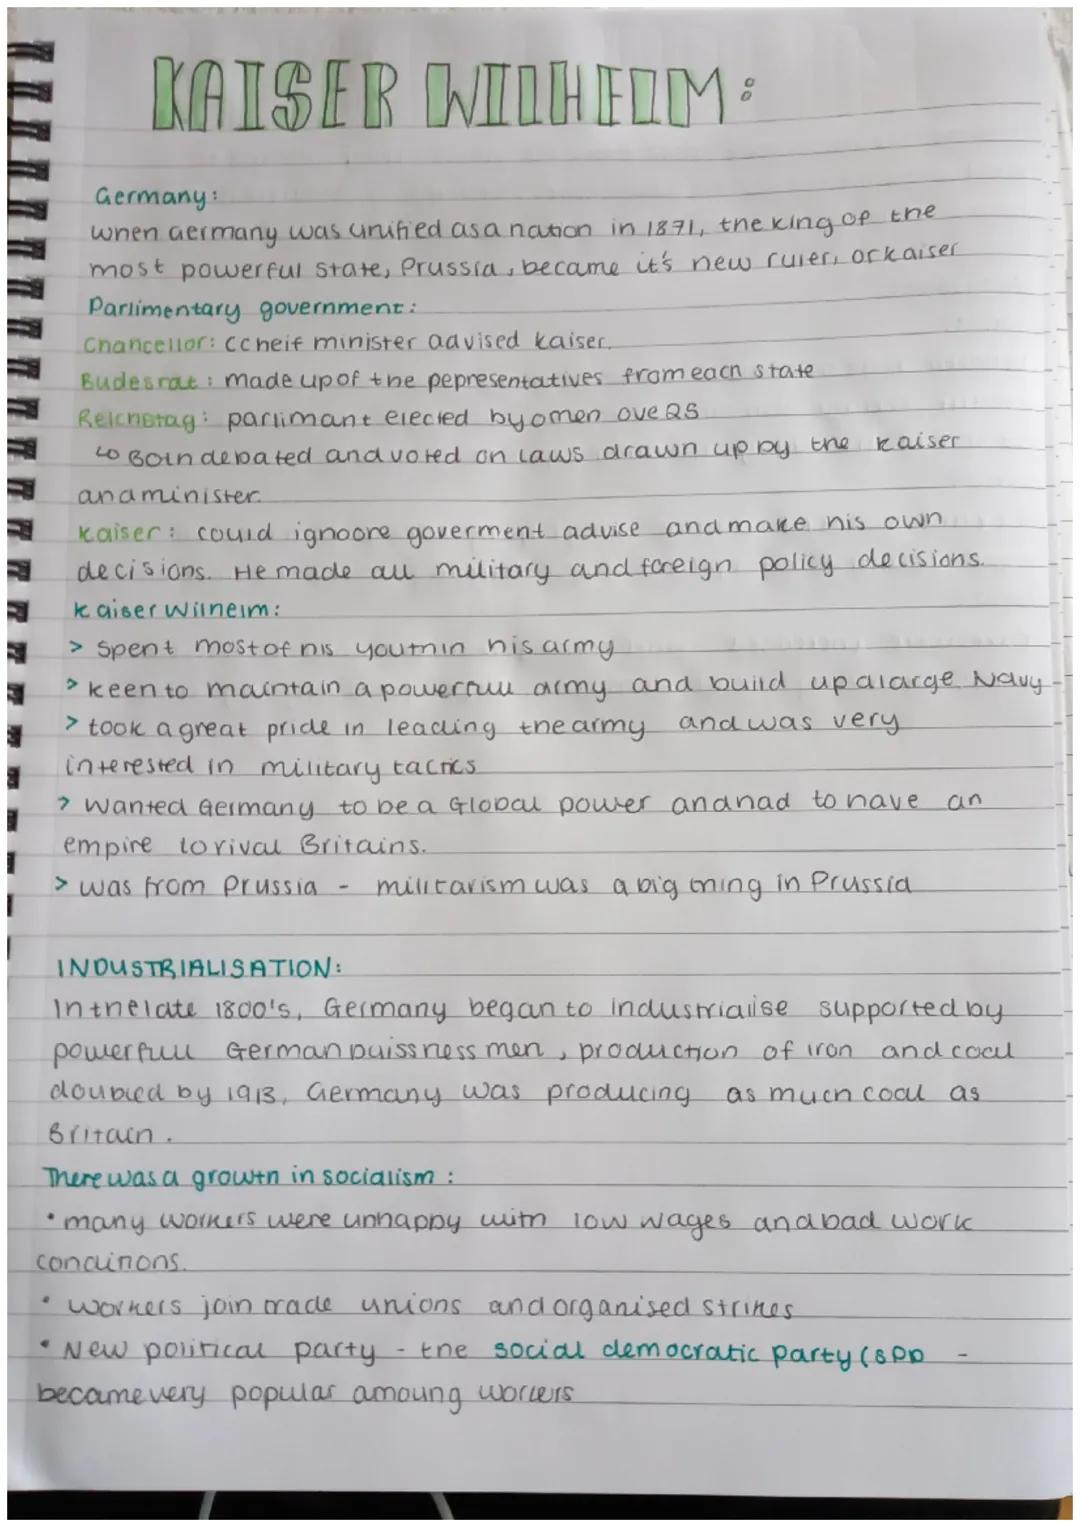 KAISER WILHELM:
Germany:
when Germany was unified as a nation in 1871, the king of the
most powerful state, Prussia, became it's new ruler, or kaiser
Parlimentary government:
Chancellor: ccheif minister advised kaiser.
Budesrat: made up of the pepresentatives from each state
Reichstag: parlimant elected by omen ove 25
↳ Both debated and voted on laws drawn up by the kaiser
and minister.
kaiser: could ignoore goverment advise and make his own
decisions. He made all military and foreign policy decisions.
kaiser Wilhelm:
> Spent most of his youth in his army
> keen to maintain a powerful army and build up a large Navy
> took a great pride in leading the army and was very
interested in military tactics
> Wanted Germany to be a Global power and had to have an
empire to rival Britains.
> was from Prussia - militarism was a big thing in Prussia
INDUSTRIALISATION:
In the late 1800's, Germany began to industrialise supported by
powerful German buissness men, production of iron and coal
doubled by 1913, Germany was producing as much coal as
Britain.
There was a growth in socialism:
• many workers were unhappy with low wages and bad work
conditions.
• workers join trade unions and organised strikes
• New political party - the social democratic party (SPD -
became very popular amoung workers